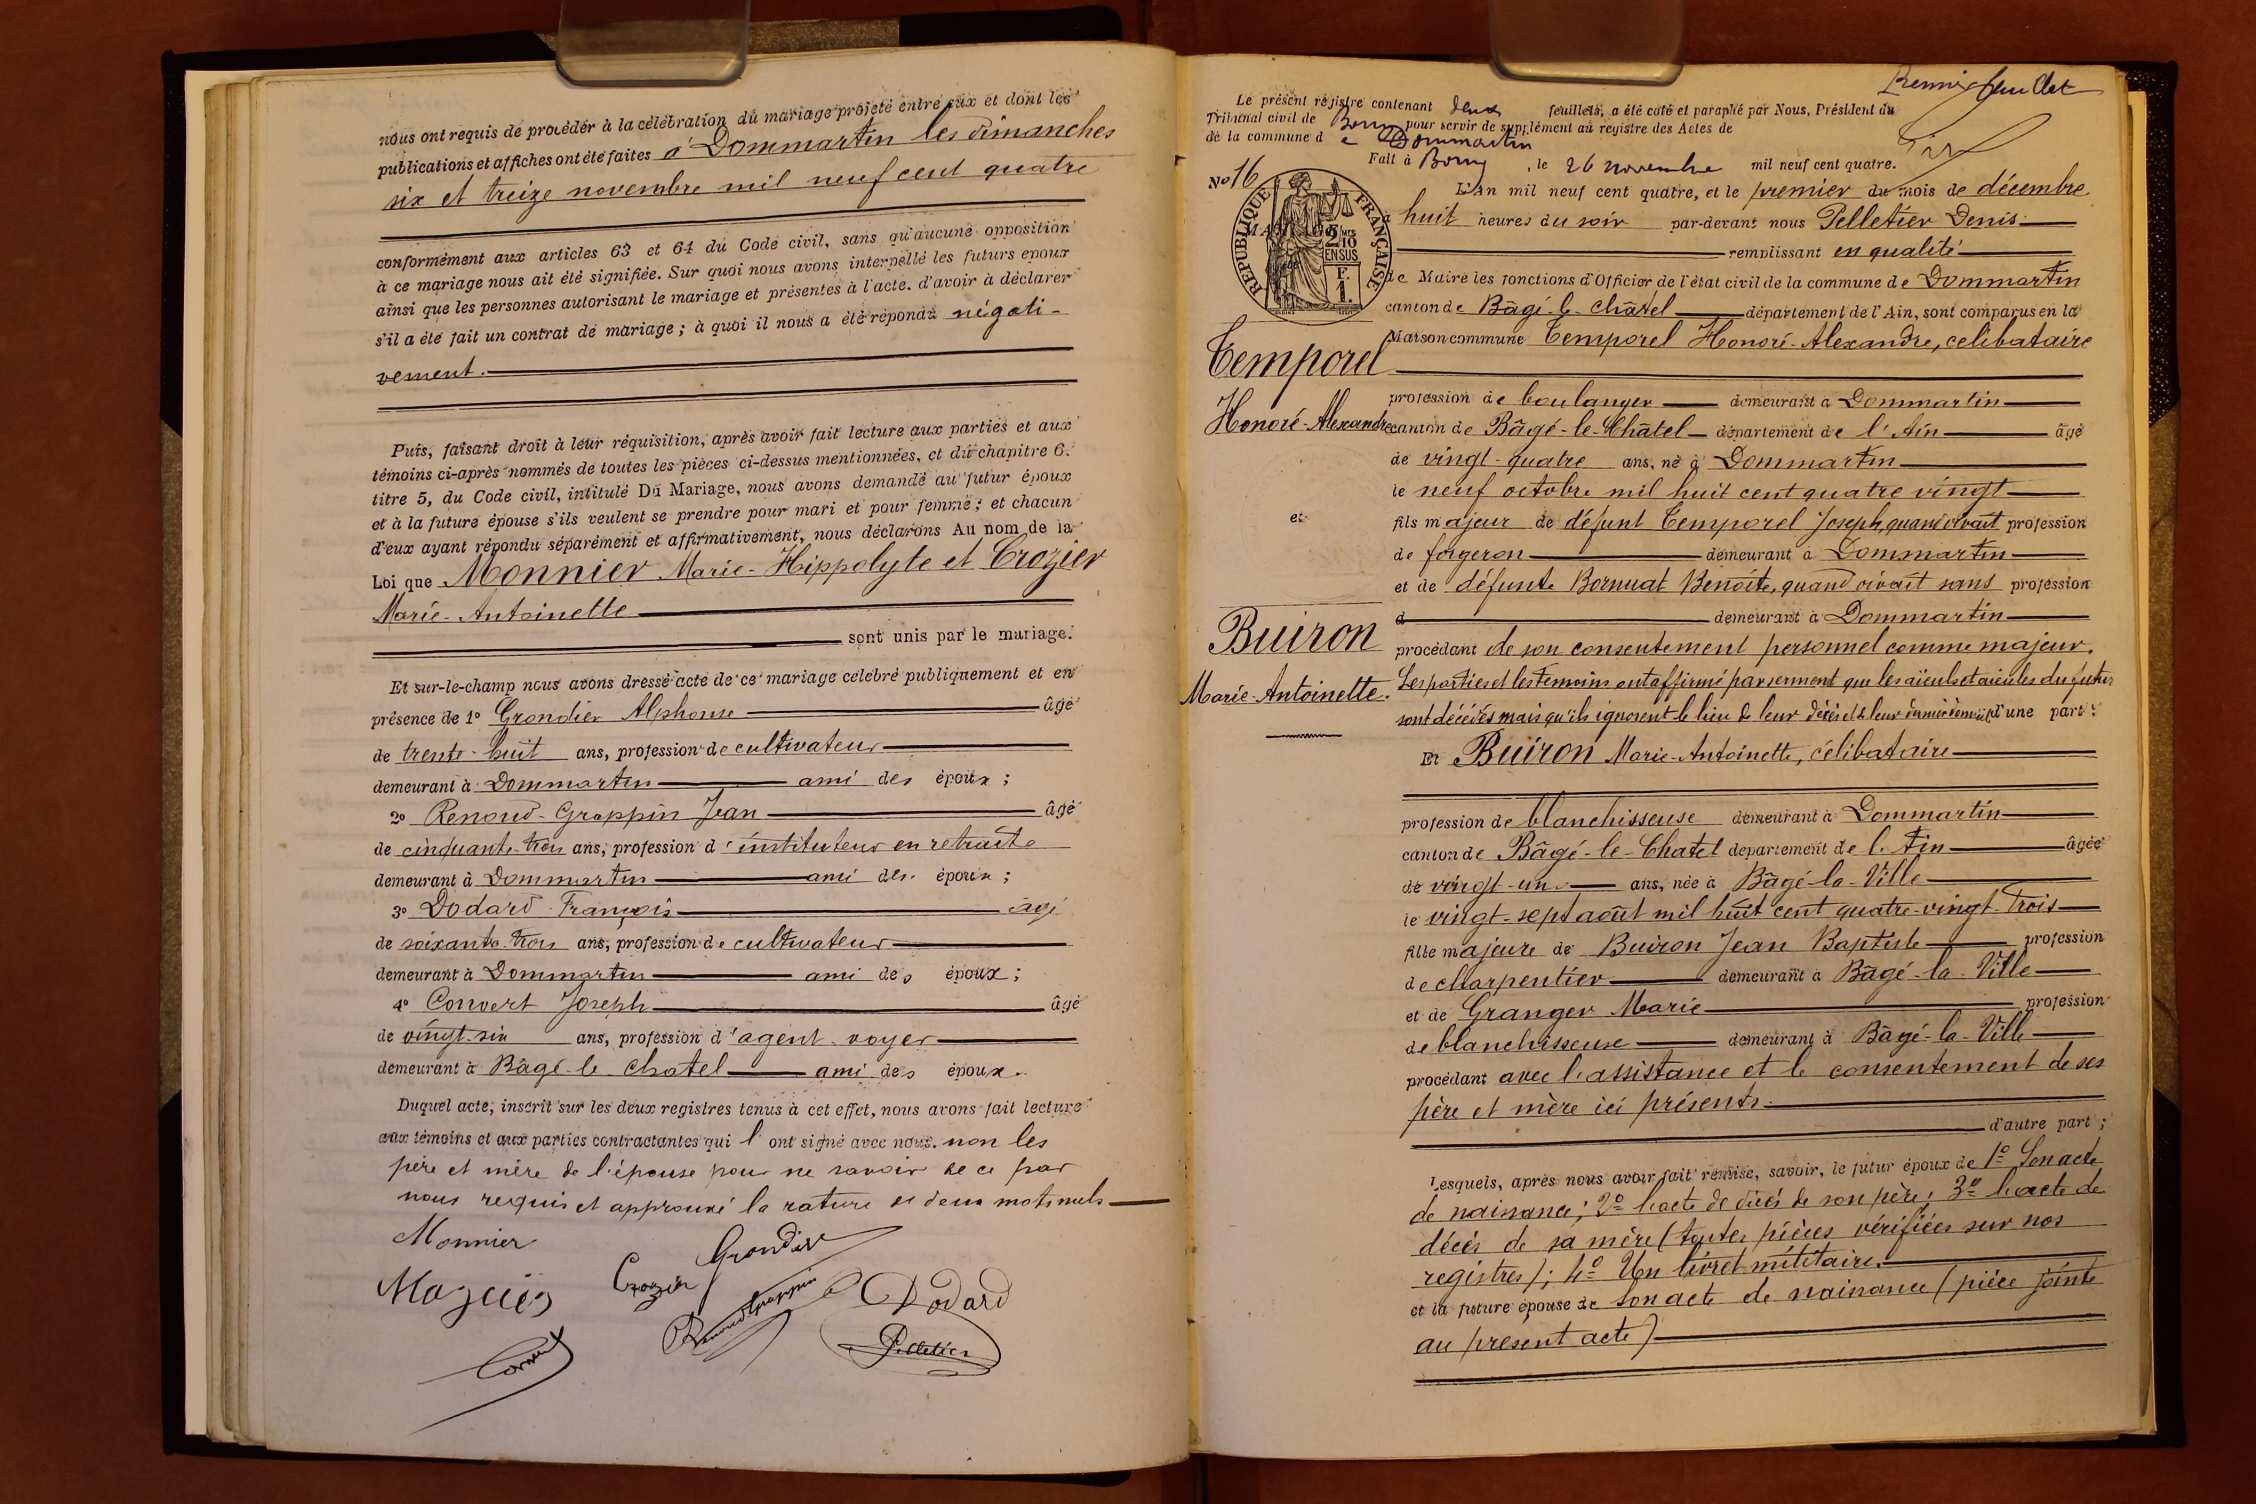 nous ont requis de procéder à la célébration du mariage projeté entre eux et dont les
publications et affiches ont été faites à Dommartin les dimanches
six et treize novembre mil neuf cent quatre
conformément aux articles 63 et 64 du Code civil, sans qu'aucune opposition
à ce mariage nous ait été signifiée. Sur quoi nous avons interpellé les futurs époux
ainsi que les personnes autorisant le mariage et présentes à l'acte. d'avoir à déclarer
s'il a été fait un contrat de mariage ; à quoi il nous a été répondu négati-
vement.
Puis, faisant droit à leur réquisition, après avoir fait lecture aux parties et aux
témoins ci-après nommés de toutes les pièces ci-dessus mentionnées, et du chapitre 6.
titre 5, du Code civil, intitulé Du Mariage, nous avons demandé au futur époux
et à la future épouse s'ils veulent se prendre pour mari et pour femme ; et chacun
d'eux ayant répondu séparément et affirmativement, nous déclarons Au nom de la
Loi que Monnier Marie-Hippolyte et Crozier
Marie-Antoinette
sont unis par le mariage.
Et sur-le-champ nous avons dressé acte de ce mariage célébré publiquement et en
présence de 1° Grondier Alphonse âgé
de trente-huit ans, profession de cultivateur
demeurant à Dommartin ami des époux ;
2° Renoud-Grappin Jean âgé
de cinquante-trois ans, profession d'instituteur en retraite
demeurant à Dommartin ami des époux ;
3° Dodard François âgé
de soixante-trois ans, profession de cultivateur
demeurant à Dommartin ami des époux ;
4° Convert Joseph âgé
de vingt-six ans, profession d'agent-voyer
demeurant à Bâgé-le-Chatel ami des époux.
Duquel acte, inscrit sur les deux registres tenus à cet effet, nous avons fait lecture
aux témoins et aux parties contractantes qui l'ont signé avec nous. non les
père et mère de l'épouse pour ne savoir de ce par
nous requis et approuvé la rature de deux mots nuls
Monnier
Crozier Grondier
Renoud Grappin Dodard
Convert Pelletier
Premier feuillet
Le présent registre contenant deux feuillets, a été coté et paraphé par Nous, Président du
Tribunal civil de Bourg pour servir de supplément au registre des Actes de
de la commune de Dommartin
Fait à Bourg, le 26 novembre mil neuf cent quatre.
N° 16
RÉPUBLIQUE FRANÇAISE
2/10 EN SUS
F. 1.
L'An mil neuf cent quatre, et le premier du mois de décembre
à huit heures du soir par-devant nous Pelletier Denis
remplissant en qualité
de Maire les fonctions d'Officier de l'état civil de la commune de Dommartin
canton de Bâgé-le-Châtel département de l'Ain, sont comparus en la
Maison commune Temporel Honoré-Alexandre, célibataire
Temporel
Honoré-Alexandre
et
Buiron
Marie-Antoinette.
profession de boulanger demeurant à Dommartin
canton de Bâgé-le-Châtel département de l'Ain âgé
de vingt-quatre ans, né à Dommartin
le neuf octobre mil huit cent quatre vingt
fils majeur de défunt Temporel Joseph, quand vivait profession
de forgeron demeurant à Dommartin
et de défunte Bornuat Benoîte, quand vivait sans profession
d demeurant à Dommartin
procédant de son consentement personnel comme majeur.
Les parties et les témoins ont affirmé par serment que les aïeuls et aïeules du futur
sont décédés mais qu'ils ignorent le lieu de leur décès et de leur dernier domicile d'une part :
Et Buiron Marie-Antoinette, célibataire
profession de blanchisseuse demeurant à Dommartin
canton de Bâgé-le-Chatel département de l'Ain âgée
de vingt-un ans, née à Bâgé-la-Ville
le vingt-sept août mil huit cent quatre-vingt-trois
fille majeure de Buiron Jean Baptiste profession
de charpentier demeurant à Bâgé-la-Ville
et de Granger Marie profession
de blanchisseuse demeurant à Bâgé-la-Ville
procédant avec l'assistance et le consentement de ses
père et mère ici présents.
d'autre part ;
Lesquels, après nous avoir fait remise, savoir, le futur époux de 1° Son acte
de naissance ; 2° l'acte de décès de son père ; 3° l'acte de
décès de sa mère (toutes pièces vérifiées sur nos
registres) ; 4° Un livret militaire.
et la future épouse de Son acte de naissance (pièce jointe
au présent acte)